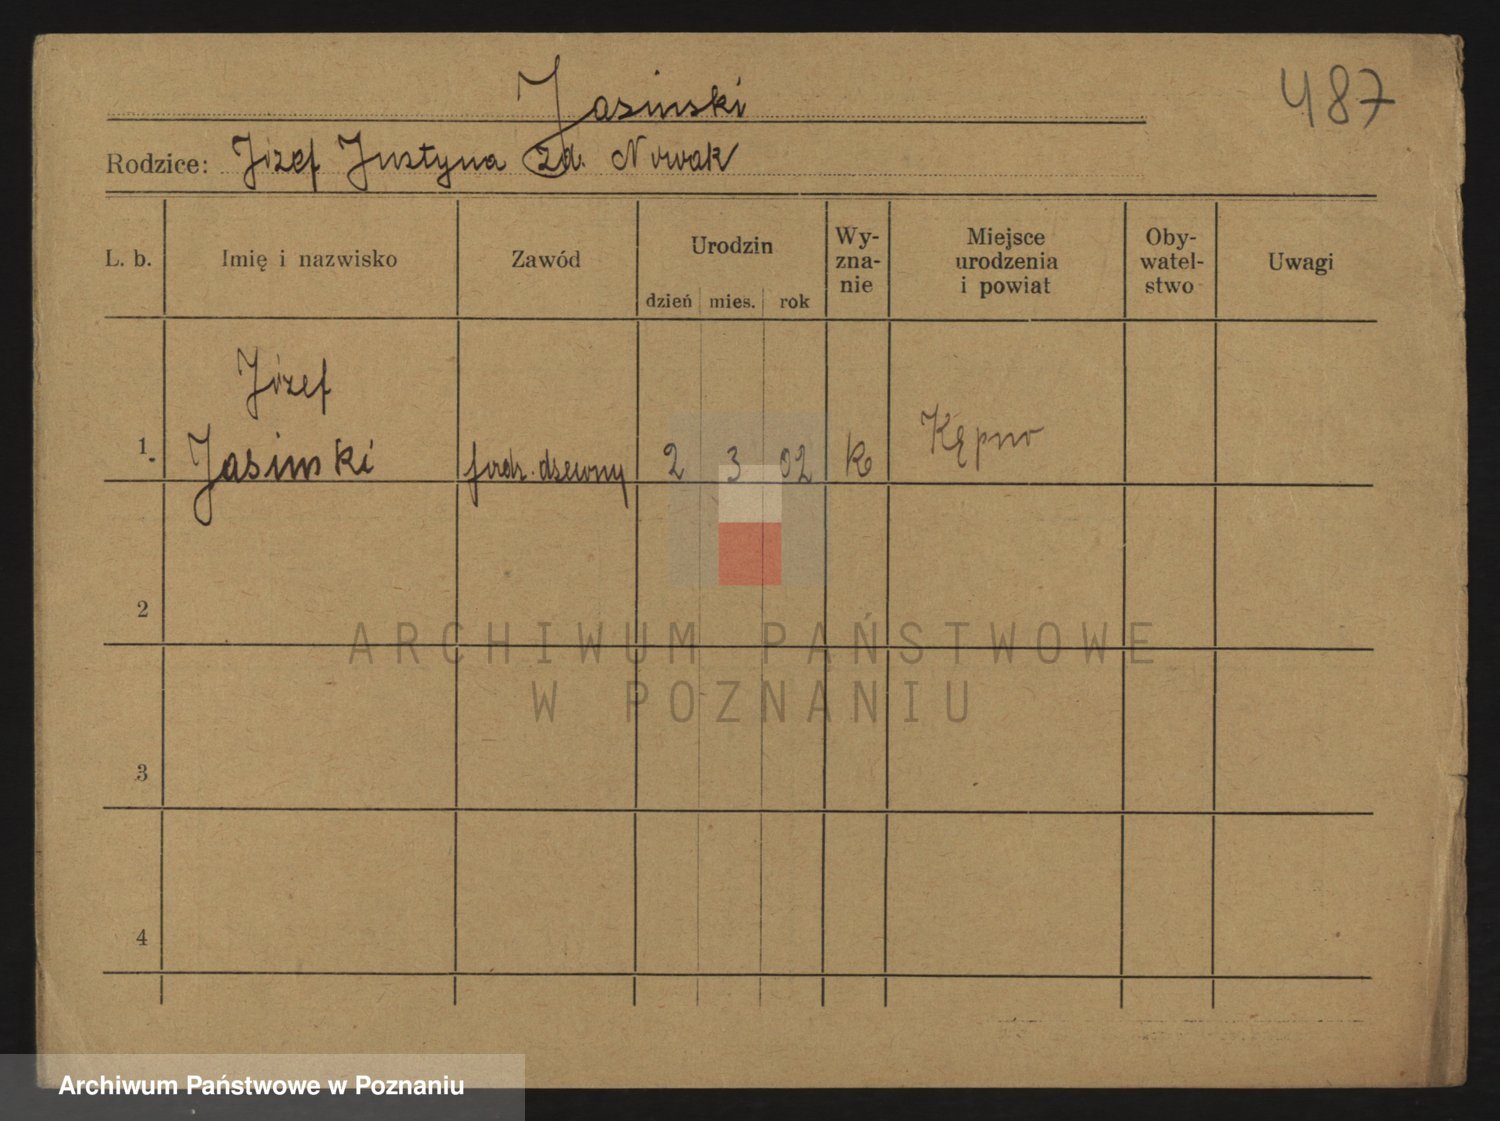 487
Jasinski
Rodzice: Józef Justyna zd. Nowak
L. b. Imię i nazwisko Zawód Urodzin dzień mies. rok Wy-znanie Miejsce urodzenia i powiat Oby-watel-stwo Uwagi
Józef
1. Jasinski drzewny 2 3 02 k Kępno
2
3
4
ARCHIWUM PAŃSTWOWE
W POZNANIU
Archiwum Państwowe w Poznaniu